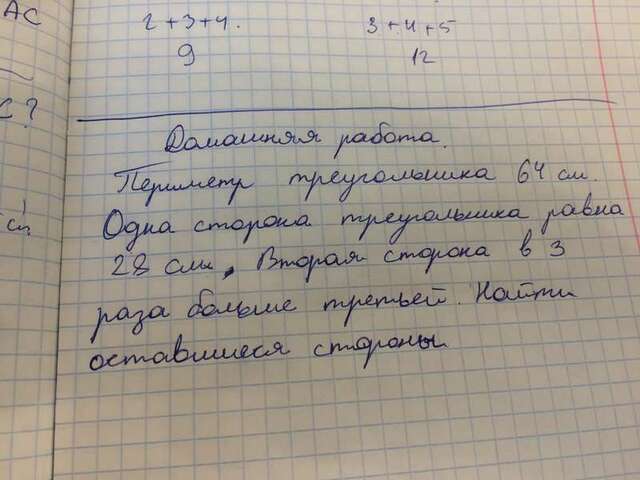 АС
2+3+4.
3+4+5
9
12
С?
Домашняя работа.
Периметр треугольника 64 см.
Одна сторона треугольника равна
28 см. Вторая сторона в 3
раза больше третьей. Найти
оставшиеся стороны